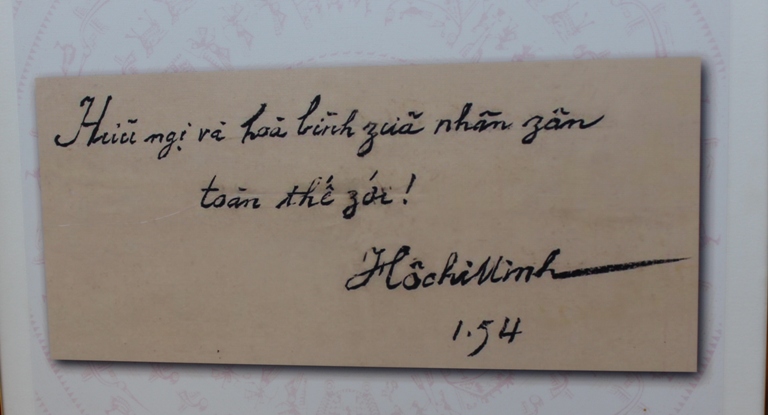 Hữu nghị và hoà bình zữa nhân zân
toàn thế zới!
HồchíMinh
1.54